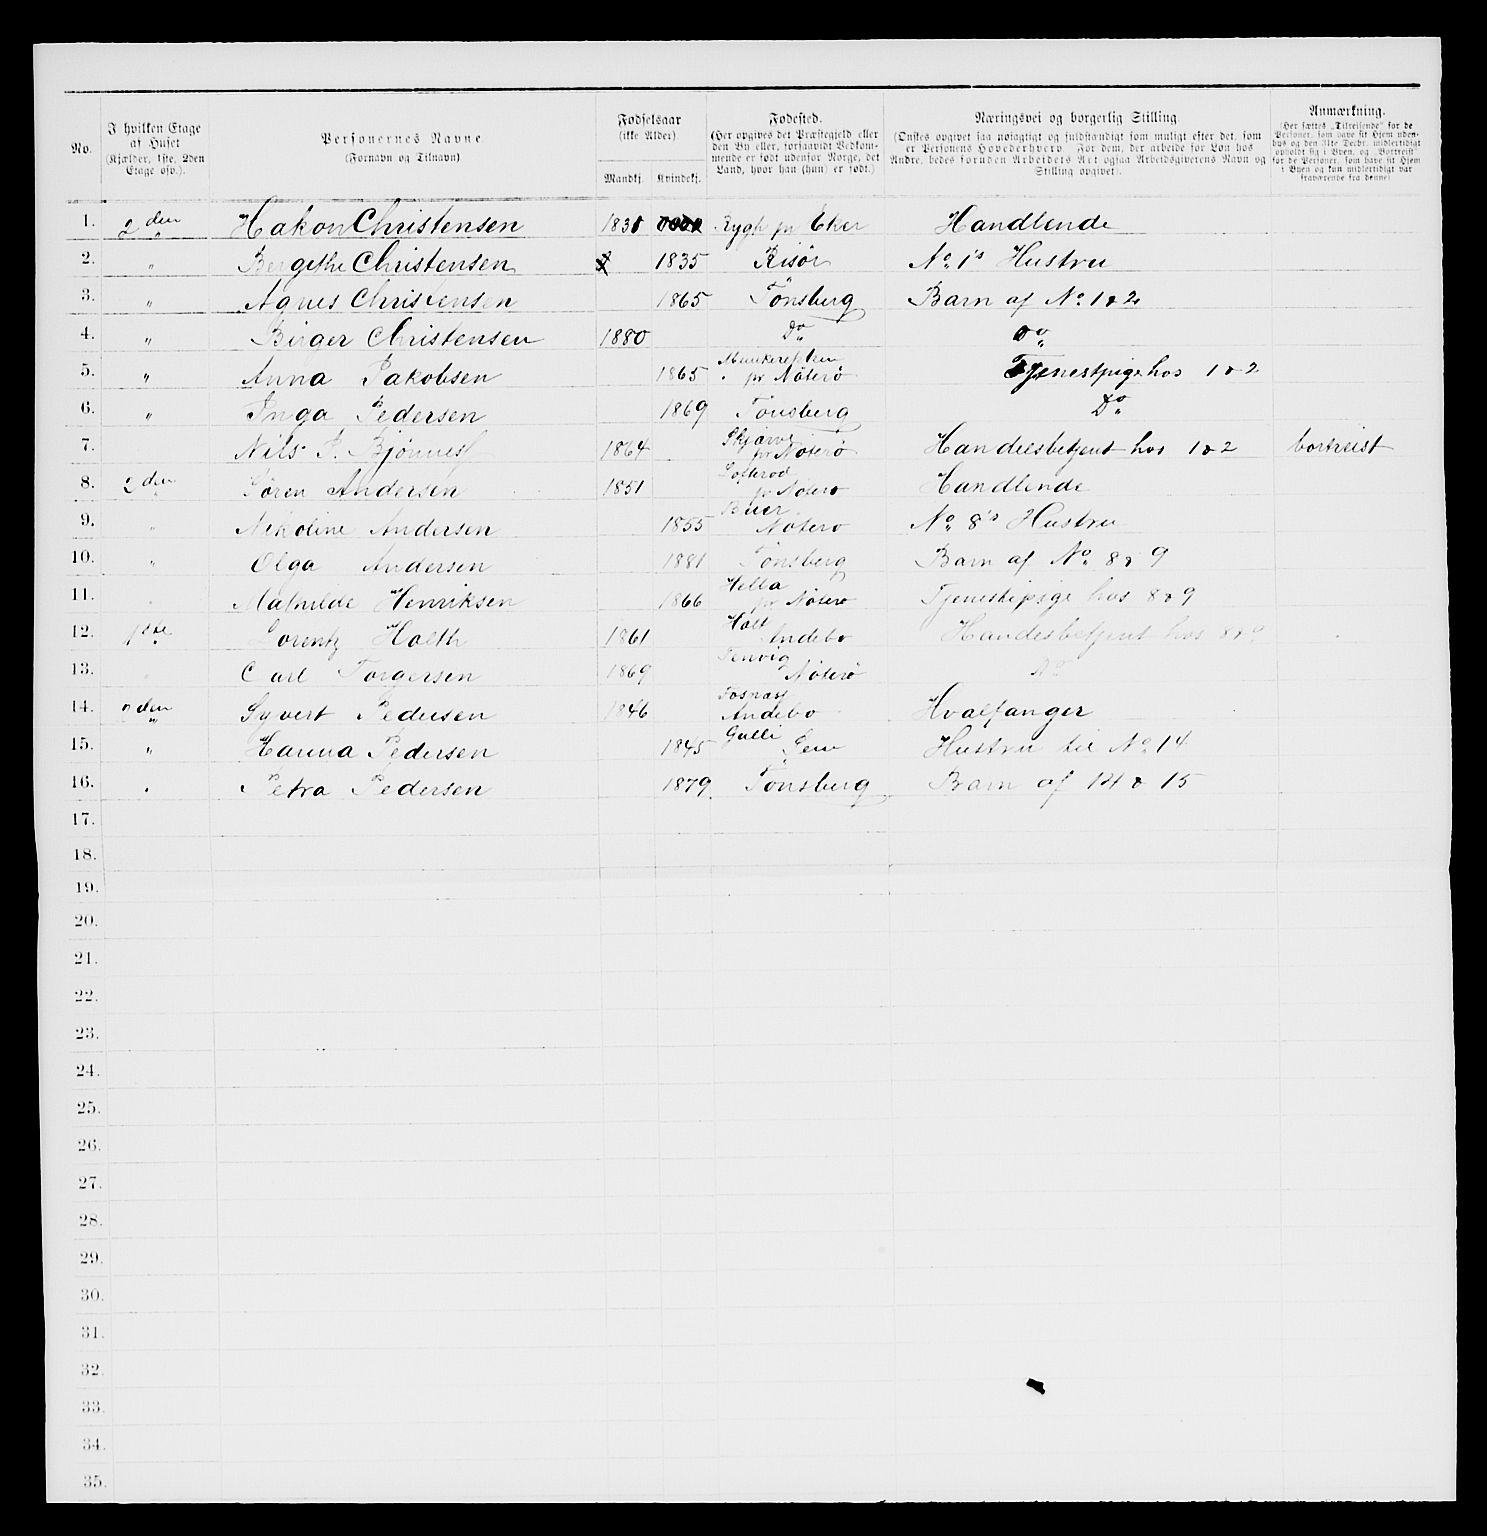 No.
I hvilken Etage af Huset (Kjælder, 1ste, 2den Etage osv.).
Personernes Navne. (Fornavn og Tilnavn)
Fødselsaar (ikke Alder).
Mandkj. Kvindekj.
Fødested. (Her opgives det Præstegjeld eller den By eller, forsaavidt Vedkommende er født udenfor Norge, det Land, hvor han (hun) er født.)
Næringsvei og borgerlig Stilling. (Ønskes opgivet saa nøiagtigt og fuldstændigt som muligt efter det, som er Personens Hovederhverv. For dem, der arbeide for Løn hos Andre, bedes foruden Arbeidets Art ogsaa Arbeidsgiverens Navn og Stilling opgivet).
Anmærkning. (Her sættes „Tilreisende" for de Personer, som have sit Hjem udenbys og den 31te Decbr. midlertidigt opholdt sig i Byen, og „Bortreist" for de Personer, som have sit Hjem i Byen og kun midlertidigt var fraværende fra denne)
1. 2den Hakon Christensen 1831 Rygh pr Eker Handlende
2. " Bergethe Christensen 1835 Risör No 1's Hustru
3. " Agnes Christensen 1865 Tönsberg Barn af No 1 & 2
4. " Birger Christensen 1880 Do Do
5. " Anna Jakobsen 1865 pr Nöterö Tjenestpige hos 1 & 2
6. " Inga Pedersen 1869 Tönsberg Do
7. Nils P. Bjönnes 1864 pr Nöterö Handelsbetjent hos 1 & 2 bortreist
8. 2den Sören Andersen 1851 pr Nöterö Handlende
9. " Nikoline Andersen 1855 Buer Nöterö No 8's Hustru
10. " Olga Andersen 1881 Tönsberg Barn af No 8 & 9
11. Mathilde Henriksen 1866 Hella pr Nöterö Tjenestepige hos 8 & 9
12. 1ste Lorentz Holth 1861 Holt Andebo Handesbetjent hos 8 & 9
13. Carl Torgersen 1869 Tenvig Nöterö Do
14. 2den Syvert Pedersen 1846 Fosnass Andebo Hvalfanger
15. " Hanna Pedersen 1845 Gulli Sem Hustru til No 14
16. " Petra Pedersen 1879 Tönsberg Barn af 14 & 15
17.
18.
19.
20.
21.
22.
23.
24.
25.
26.
27.
28.
29.
30.
31.
32.
33.
34.
35.